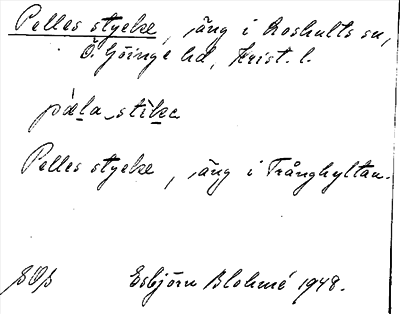 Pelles stycke, äng i Loshults sn,
Ö. Göinge hd, Krist. l.
pæla stike
Pelles stycke, äng i Trånghyltan.
Esbjörn Blohmé 1948.